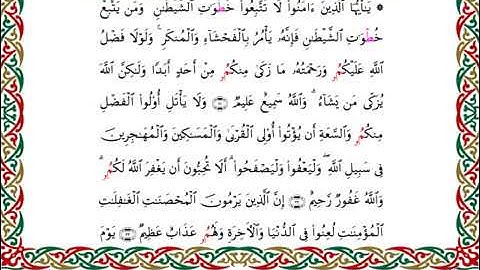 ۞ يَٰٓأَيُّهَا الَّذِينَ ءَامَنُوا۟ لَا تَتَّبِعُوا۟ خُطْوَٰتِ الشَّيْطَٰنِ وَمَن يَتَّبِعْ
خُطْوَٰتِ الشَّيْطَٰنِ فَإِنَّهُۥ يَأْمُرُ بِالْفَحْشَآءِ وَالْمُنكَرِ ۚ وَلَوْلَا فَضْلُ
اللَّهِ عَلَيْكُمُۥ وَرَحْمَتُهُۥ مَا زَكَىٰ مِنكُمُۥ مِنْ أَحَدٍ أَبَدًا وَلَٰكِنَّ اللَّهَ
يُزَكِّى مَن يَشَآءُ ۗ وَاللَّهُ سَمِيعٌ عَلِيمٌ وَلَا يَأْتَلِ أُو۟لُوا۟ الْفَضْلِ
مِنكُمُۥ وَالسَّعَةِ أَن يُؤْتُوٓا۟ أُو۟لِى الْقُرْبَىٰ وَالْمَسَٰكِينَ وَالْمُهَٰجِرِينَ
فِى سَبِيلِ اللَّهِ ۖ وَلْيَعْفُوا۟ وَلْيَصْفَحُوٓا۟ ۗ أَلَا تُحِبُّونَ أَن يَغْفِرَ اللَّهُ لَكُمُۥ ۗ
وَاللَّهُ غَفُورٌ رَّحِيمٌ إِنَّ الَّذِينَ يَرْمُونَ الْمُحْصَنَٰتِ الْغَٰفِلَٰتِ
الْمُؤْمِنَٰتِ لُعِنُوا۟ فِى الدُّنْيَا وَالْءَاخِرَةِ وَلَهُمُۥ عَذَابٌ عَظِيمٌ يَوْمَ